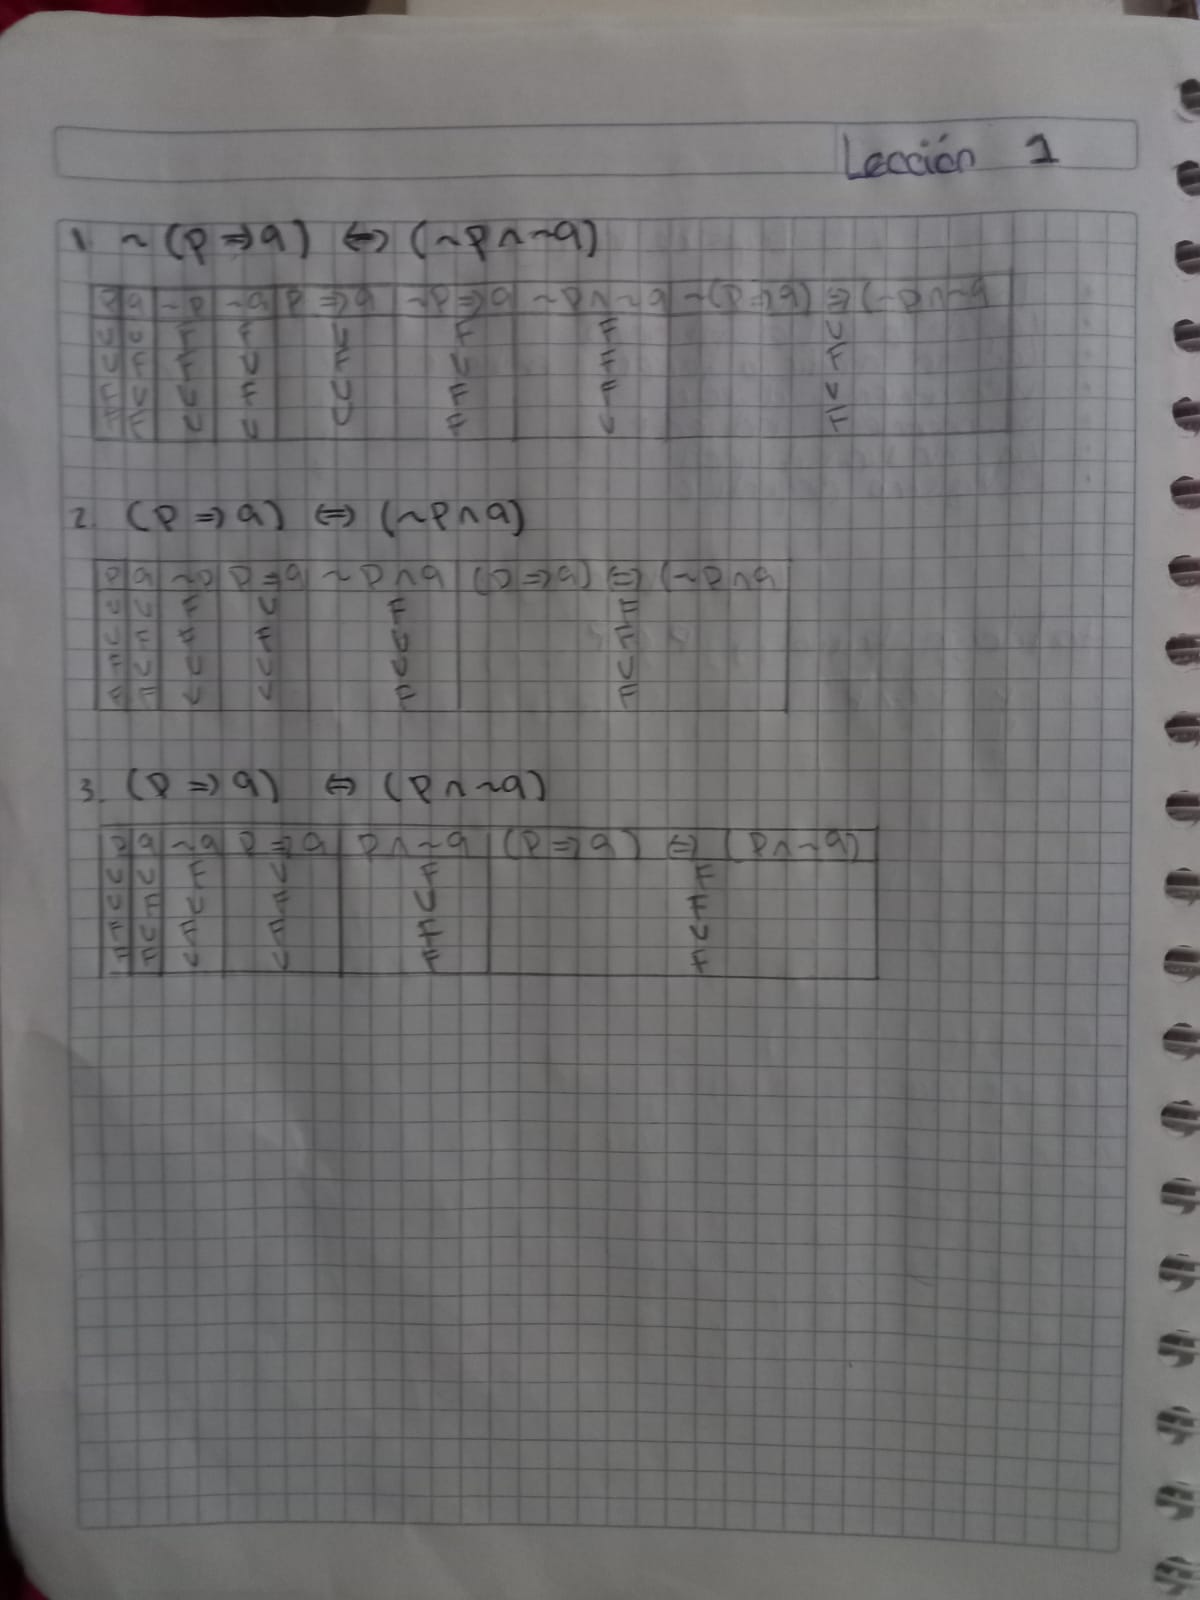 Lección 1
1. ~(p ⇒ q) ⇔ (~p ∧ ~q)
p q ~p ~q p ⇒ q ~p ⇒ q ~p ∧ ~q ~(p ⇒ q) ⇔ (~p ∧ ~q
V V F F V F F V
V F F V F V F F
F V V F V F F V
F F V V V F V F
2. (p ⇒ q) ⇔ (~p ∧ q)
p q ~p p ⇒ q ~p ∧ q (p ⇒ q) ⇔ (~p ∧ q
V V F V F F
V F F F V F
F V V V V V
F F V V F F
3. (p ⇒ q) ⇔ (p ∧ ~q)
p q ~q p ⇒ q p ∧ ~q (p ⇒ q) ⇔ (p ∧ ~q)
V V F V F F
V F V F V F
F V F F F V
F F V V F F